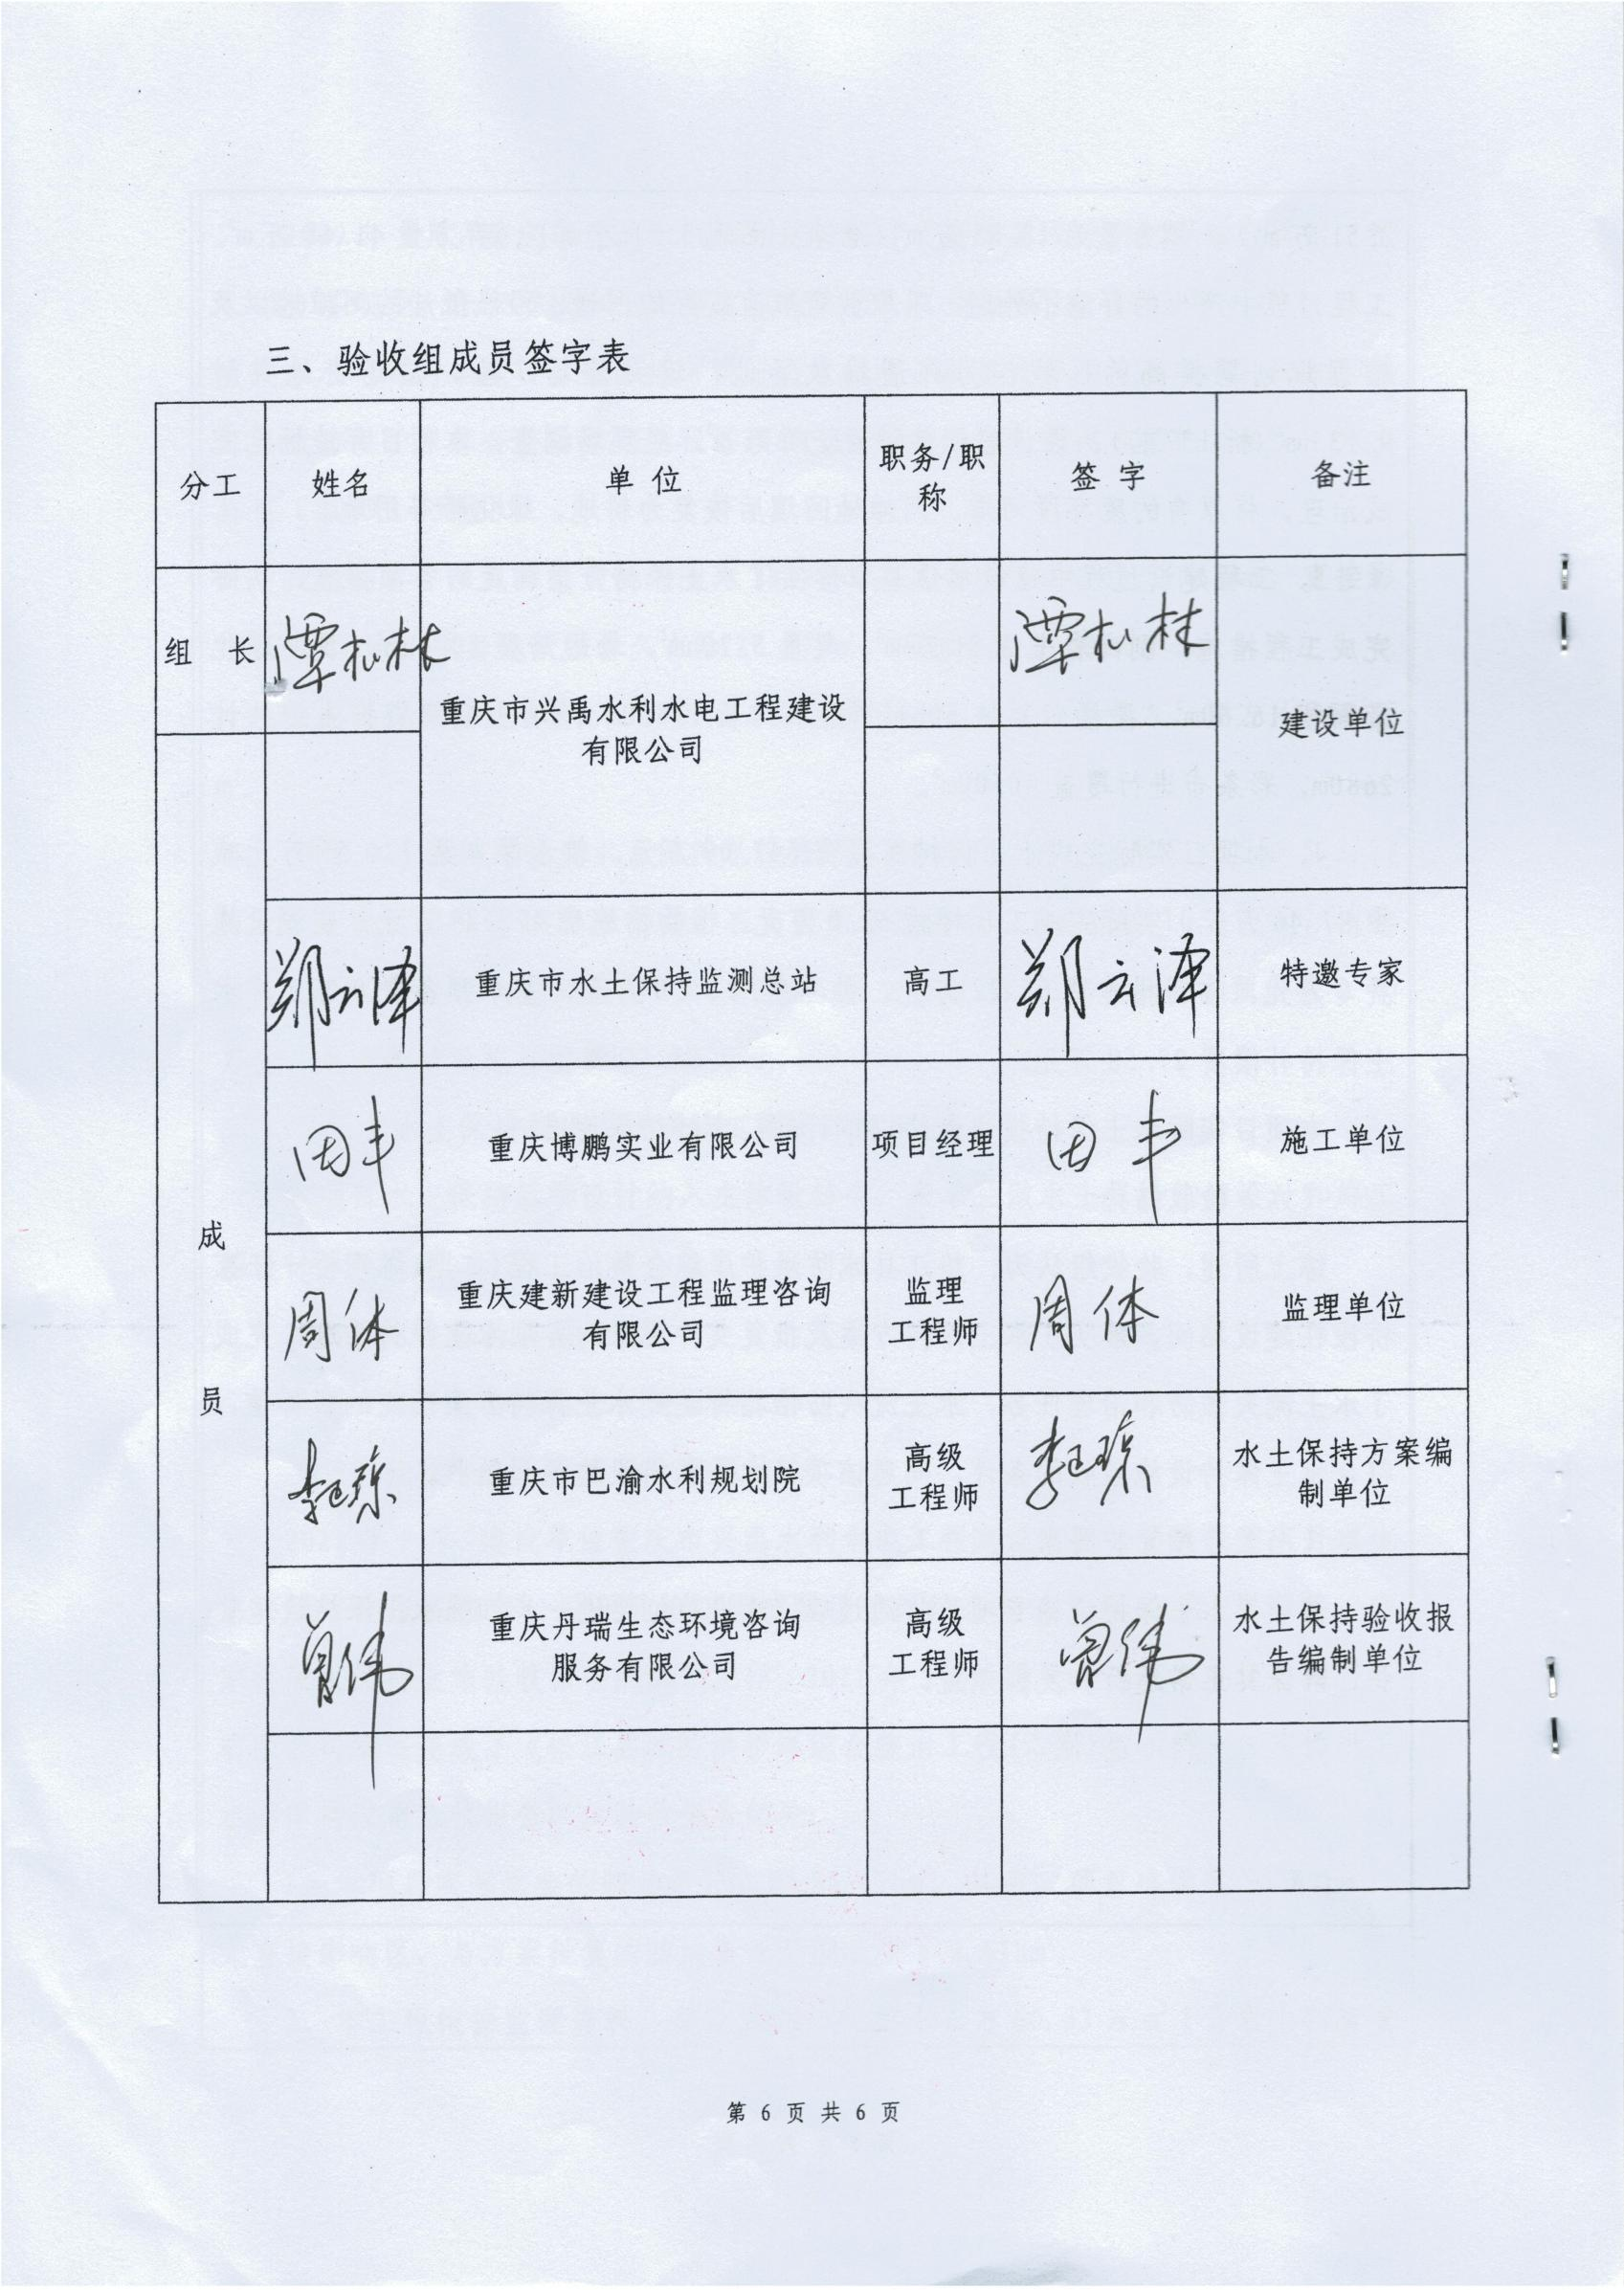 三、验收组成员签字表
分工 姓名 单 位 职务/职称 签 字 备注
组 长 谭松林 重庆市兴禹水利水电工程建设有限公司 谭松林 建设单位
成员
郑云泽 重庆市水土保持监测总站 高工 郑云泽 特邀专家
田丰 重庆博鹏实业有限公司 项目经理 田丰 施工单位
周体 重庆建新建设工程监理咨询有限公司 监理工程师 周体 监理单位
重庆市巴渝水利规划院 高级工程师 水土保持方案编制单位
曾伟 重庆丹瑞生态环境咨询服务有限公司 高级工程师 曾伟 水土保持验收报告编制单位
第 6 页 共 6 页